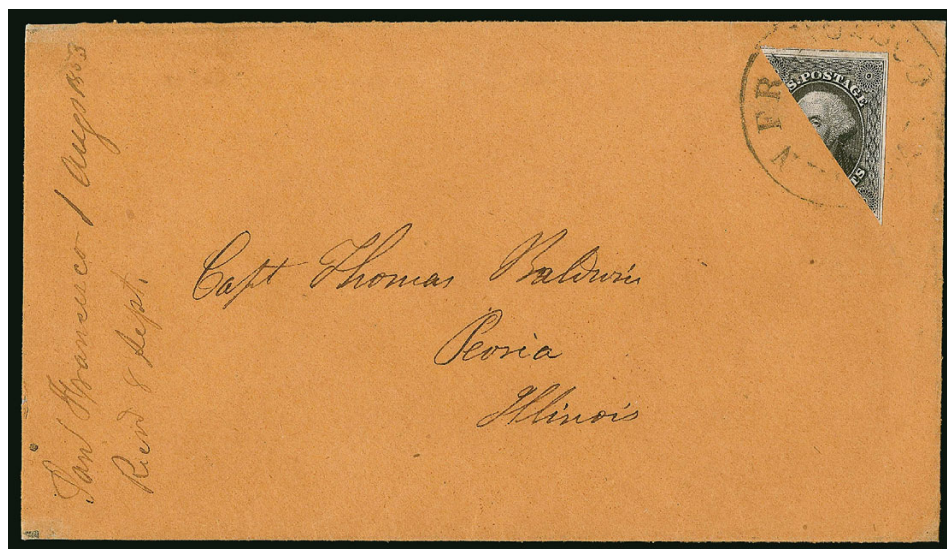 San Francisco 1 Augt 1853
Recd 8 Sept.
N FRANCISCO
S. POSTAGE
TS
Capt Thomas Baldwin
Peoria
Illinois